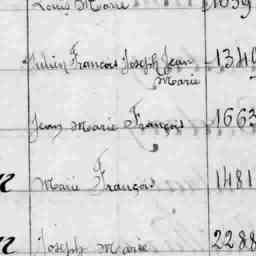 Louis Marie 1059
Julien François Joseph Jean 1340
Marie
Jean Marie François 1663
Marie François 1481
Joseph Marie 2288